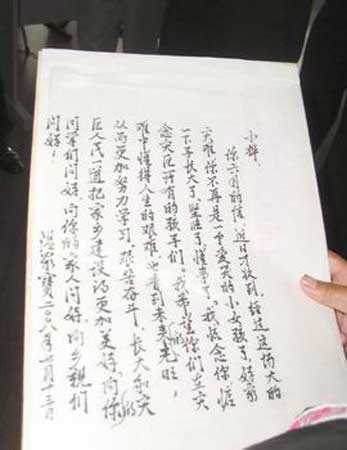 小桦,
你六月的信,近日才收到。经过这场大的
灾难,你不再是一个爱哭的小女孩了,好象
一下子长大了,坚强了,懂事了。我怀念你,惦
念灾区所有的孩子们。我希望你们在灾
难中懂得人生的艰难,也看到未来的光明,
从而更加努力学习,艰苦奋斗,长大和灾
区人民一道把家乡建设的更加美好。向你的
同学们问好,向你的家人问好,向乡亲们
问好!
温家宝 二〇〇八年月十三日